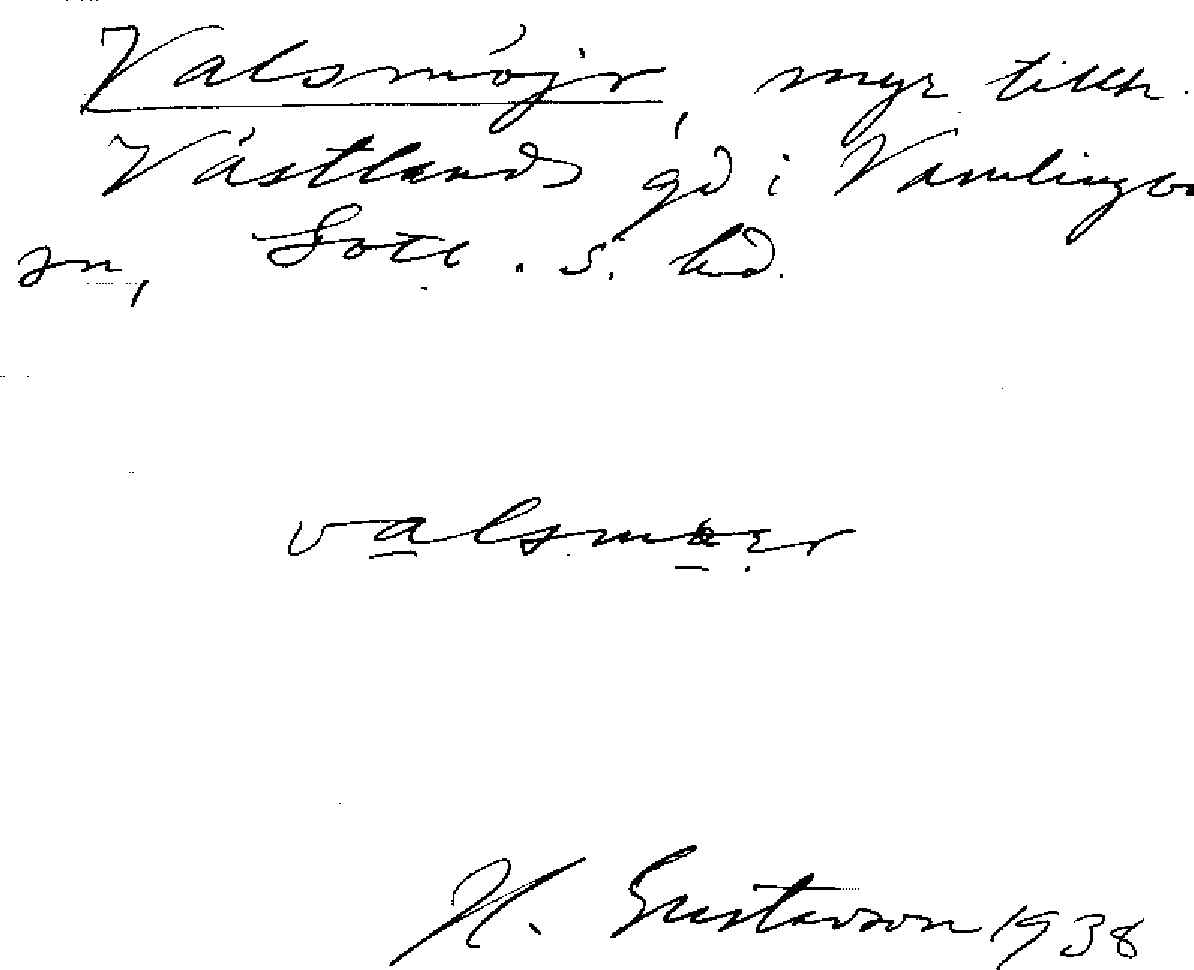 Valsmöjr, myr tillh.
Västlands gd i Vamlingbo
sn, Gotl. s. hd.
valsmœer
H. Gustavson 1938